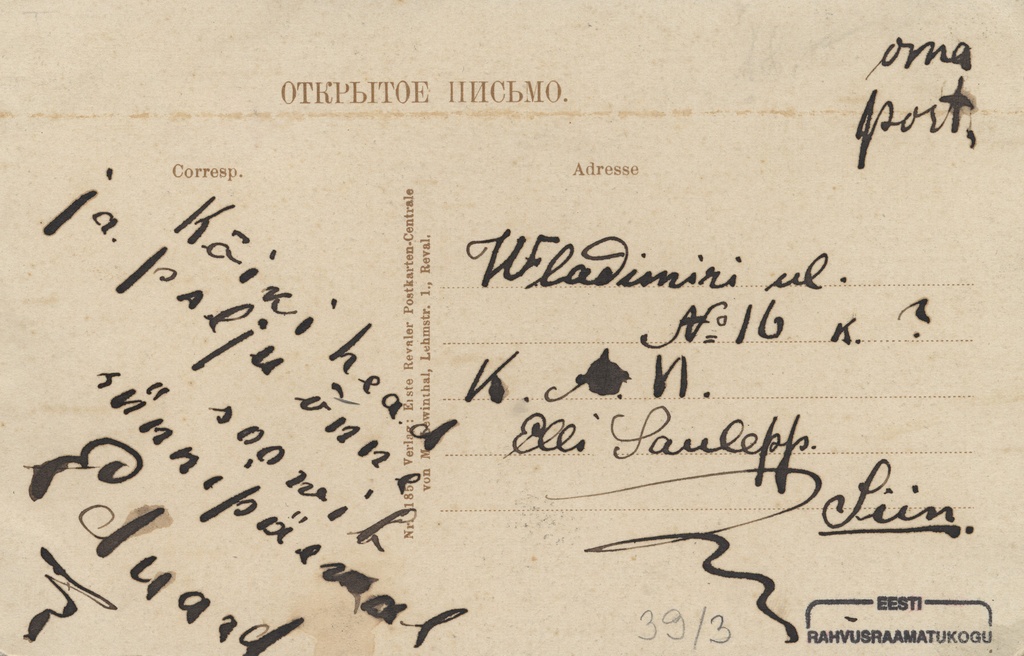 oma
port,
ОТКРЫТОЕ ПИСЬМО.
Corresp.
Adresse
Kõiki head
ja palju õnne
soovib
sünnipäewal
Eduard
Nr. 185 Verlag: Erste Revaler Postkarten-Centrale
von Lehmstr. 1., Reval.
Wladimiri ul.
№ 16 k. ?
K. A. N.
Elli Saulepp.
Siin.
39/3
EESTI
RAHVUSRAAMATUKOGU